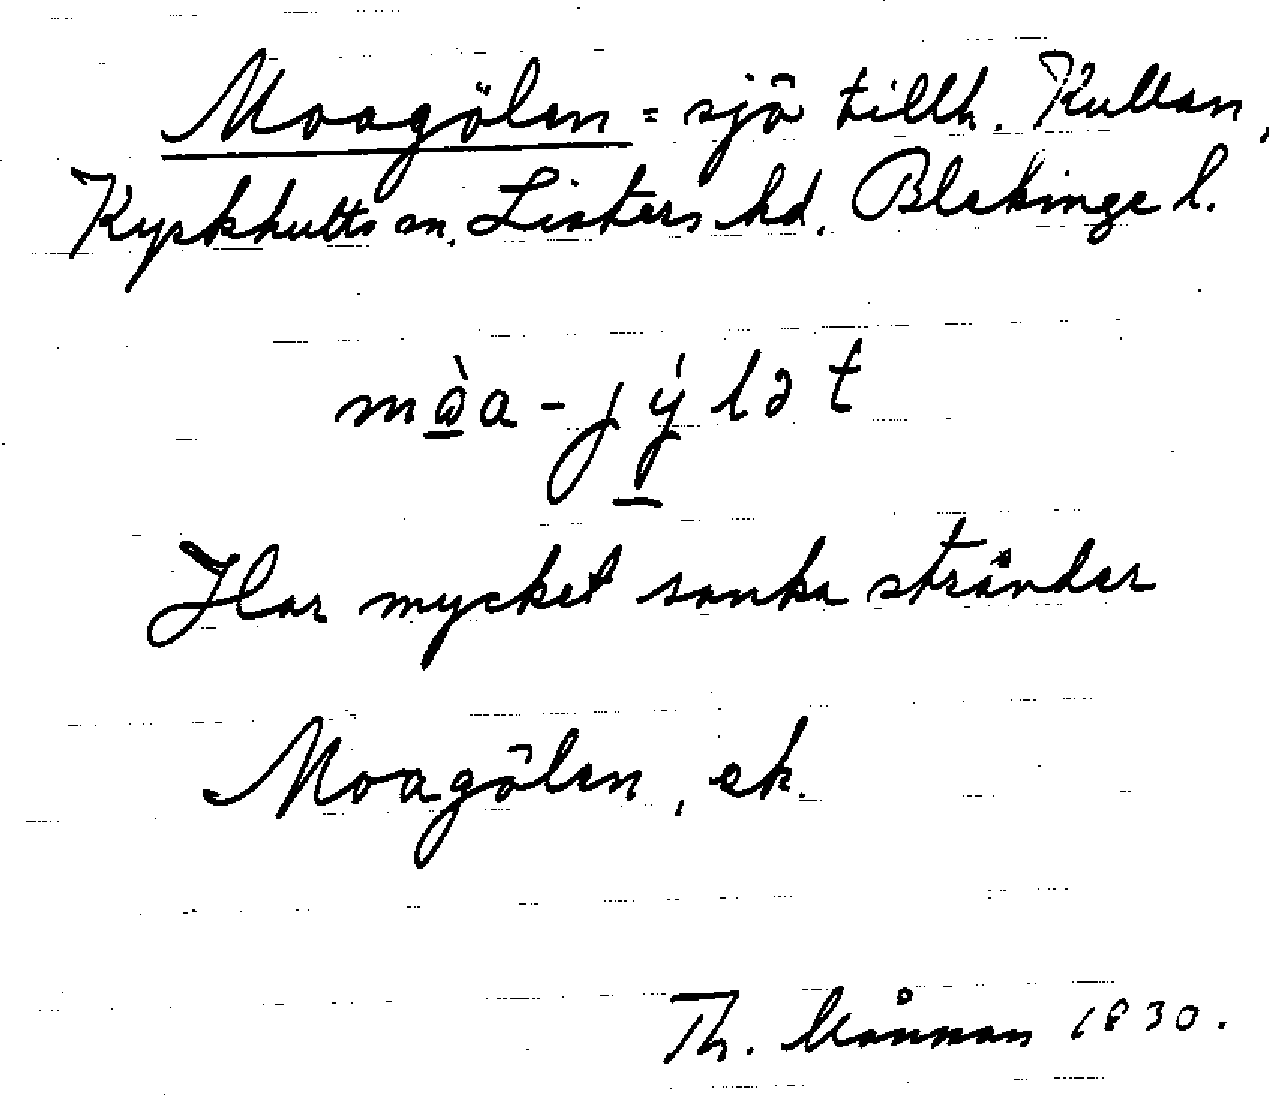 Moagölen = sjö tillh. Kullan,
Kyrkhults sn. Listers hd. Blekinge l.
mòa - jýlət
Har mycket sanka stränder
Moagölen, ek.
Th. 1930.